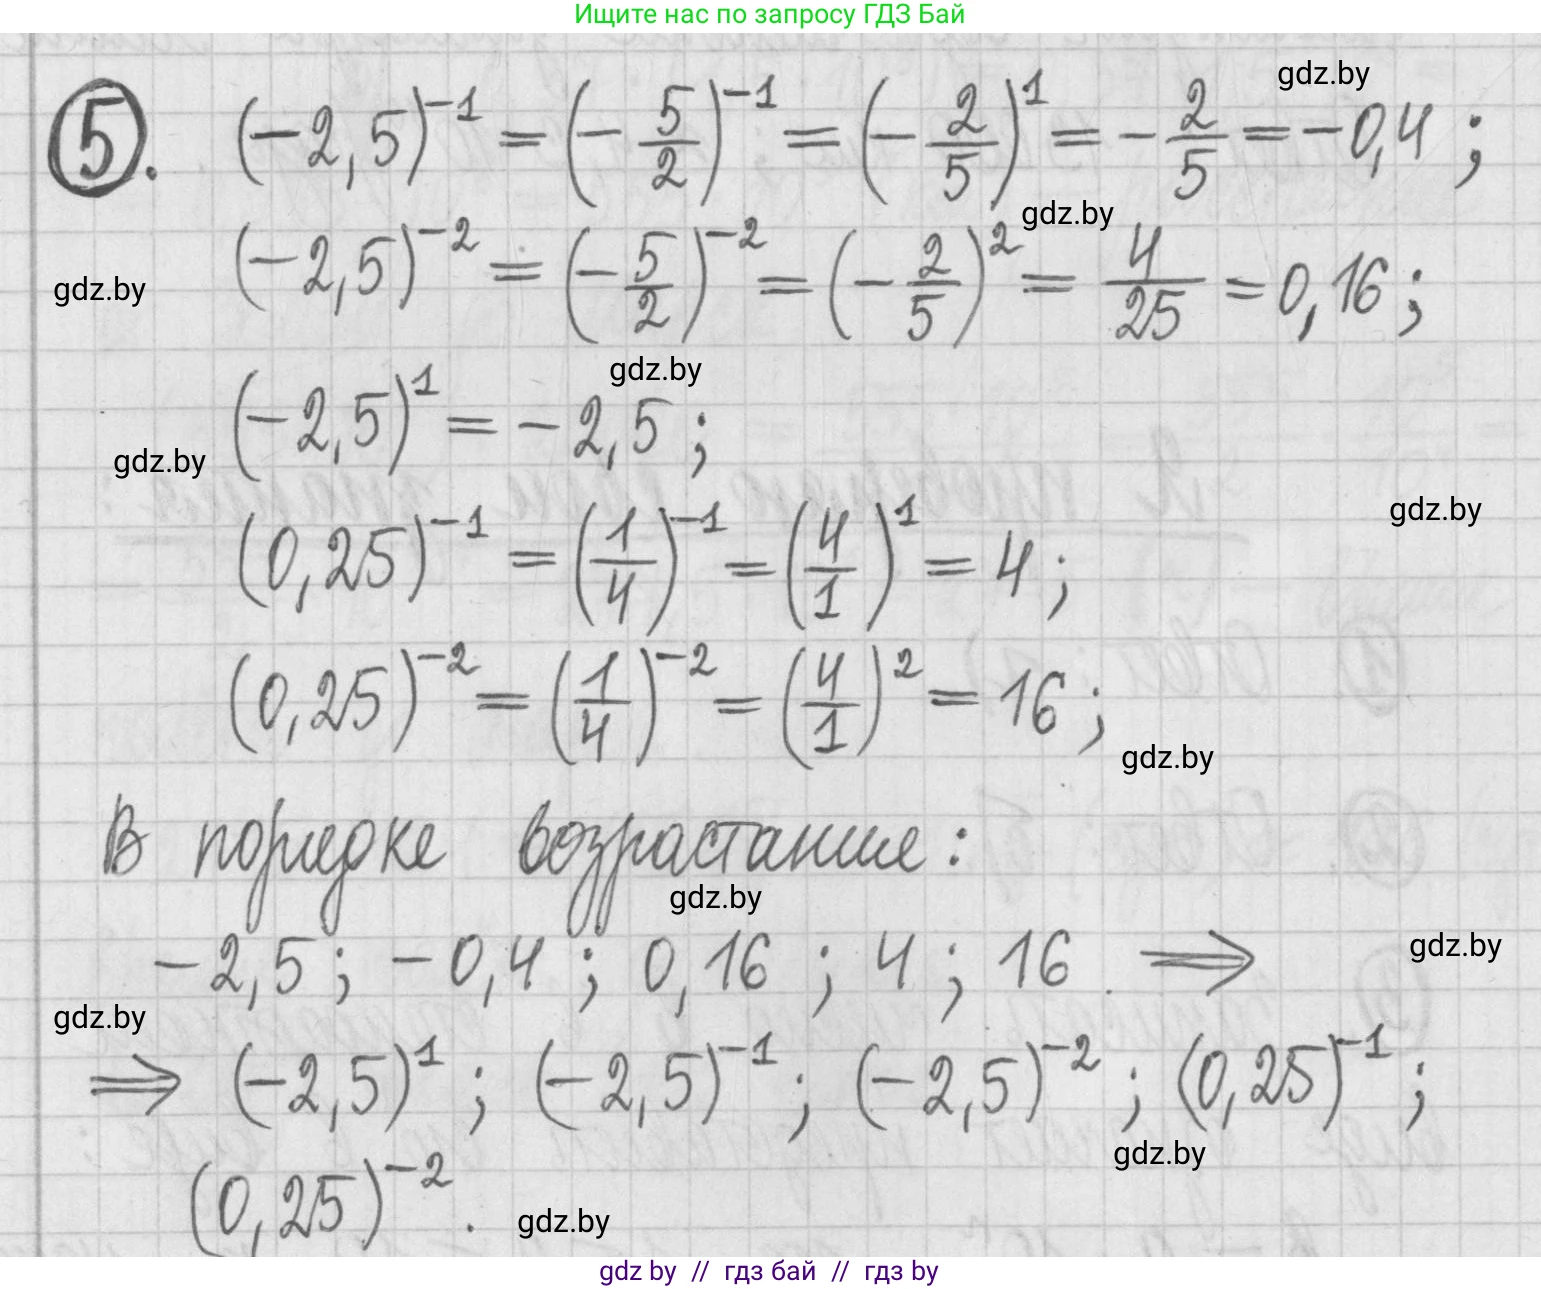 Ищите нас по запросу ГДЗ Бай
gdz.by
5. (-2,5)^{-1} = (-5/2)^{-1} = (-2/5)^1 = -2/5 = -0,4 ;
gdz.by
gdz.by
(-2,5)^{-2} = (-5/2)^{-2} = (-2/5)^2 = 4/25 = 0,16 ;
gdz.by
(-2,5)^1 = -2,5 ;
gdz.by
gdz.by
(0,25)^{-1} = (1/4)^{-1} = (4/1)^1 = 4 ;
(0,25)^{-2} = (1/4)^{-2} = (4/1)^2 = 16 ;
gdz.by
В порядке возрастания:
gdz.by
-2,5 ; -0,4 ; 0,16 ; 4 ; 16 . ⇒
gdz.by
gdz.by
⇒ (-2,5)^1 ; (-2,5)^{-1} ; (-2,5)^{-2} ; (0,25)^{-1} ;
gdz.by
(0,25)^{-2} .
gdz.by
gdz by // гдз бай // гдз by